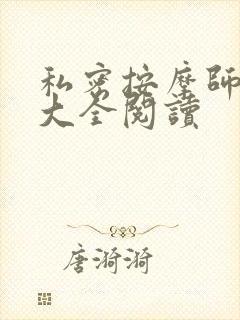 私密按摩師
大全閱讀
唐漪漪